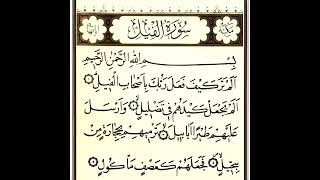 سُورَةُ الْفِيلِ
بِسْمِ اللهِ الرَّحْمٰنِ الرَّحِيمِ
اَلَمْ تَرَ كَيْفَ فَعَلَ رَبُّكَ بِاَصْحَابِ الْفِيلِ ١
اَلَمْ يَجْعَلْ كَيْدَهُمْ فِى تَضْلِيلٍ ٢ وَاَرْسَلَ
عَلَيْهِمْ طَيْرًا اَبَابِيلَ ٣ تَرْمِيهِمْ بِحِجَارَةٍ مِنْ
سِجِّيلٍ ٤ فَجَعَلَهُمْ كَعَصْفٍ مَأْكُولٍ ٥